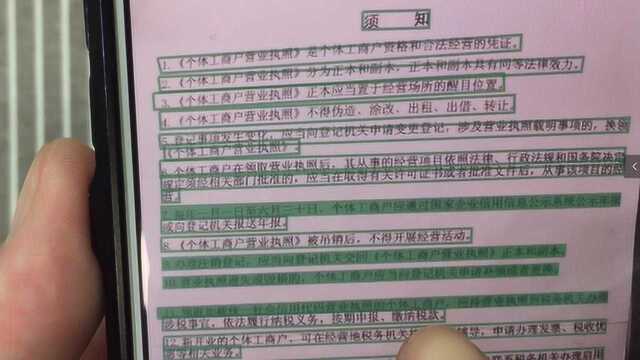 须 知
1.《个体工商户营业执照》是个体工商户资格和合法经营的凭证。
2.《个体工商户营业执照》分为正本和副本，正本和副本具有同等法律效力。
3.《个体工商户营业执照》正本应当置于经营场所的醒目位置。
4.《个体工商户营业执照》不得伪造、涂改、出租、出借、转让。
5.登记事项发生变化，应当向登记机关申请变更登记，涉及营业执照载明事项的，换领
《个体工商户营业执照》。
6.个体工商户在领取营业执照后，其从事的经营项目依照法律、行政法规和国务院决定
规定须经相关部门批准的，应当在取得有关许可证书或者批准文件后，从事该项目的经
营。
7.每年一月一日至六月三十日，个体工商户应通过国家企业信用信息公示系统公示年报
或向登记机关报送年报。
8.《个体工商户营业执照》被吊销后，不得开展经营活动。
应当向登记机关交回《个体工商户营业执照》正本和副本。
10.营业执照遗失或毁损的，个体工商户应当向登记机关申请补领或者更换。
社会信用代码营业执照的个体工商户，
涉税事宜，依法履行纳税义务，按期申报、缴纳税款
12.新开业的个体工商户，可在经营地税务机关 辅导，申请办理发票、税收优
惠等相关业务。
税务机关办理启用